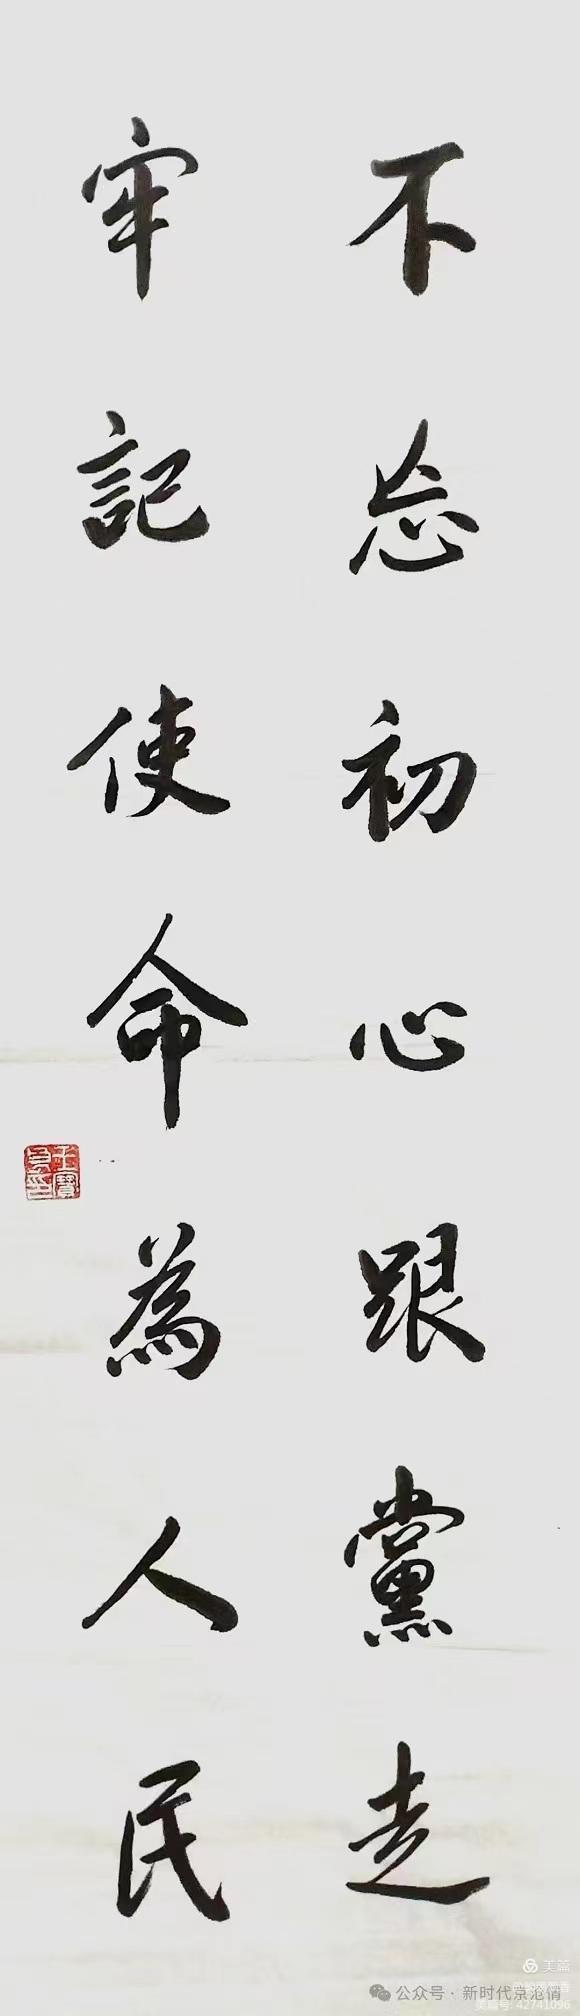 不忘初心跟黨走
牢記使命為人民
美篇
美篇号: 42741096
公众号 · 新时代京沧情